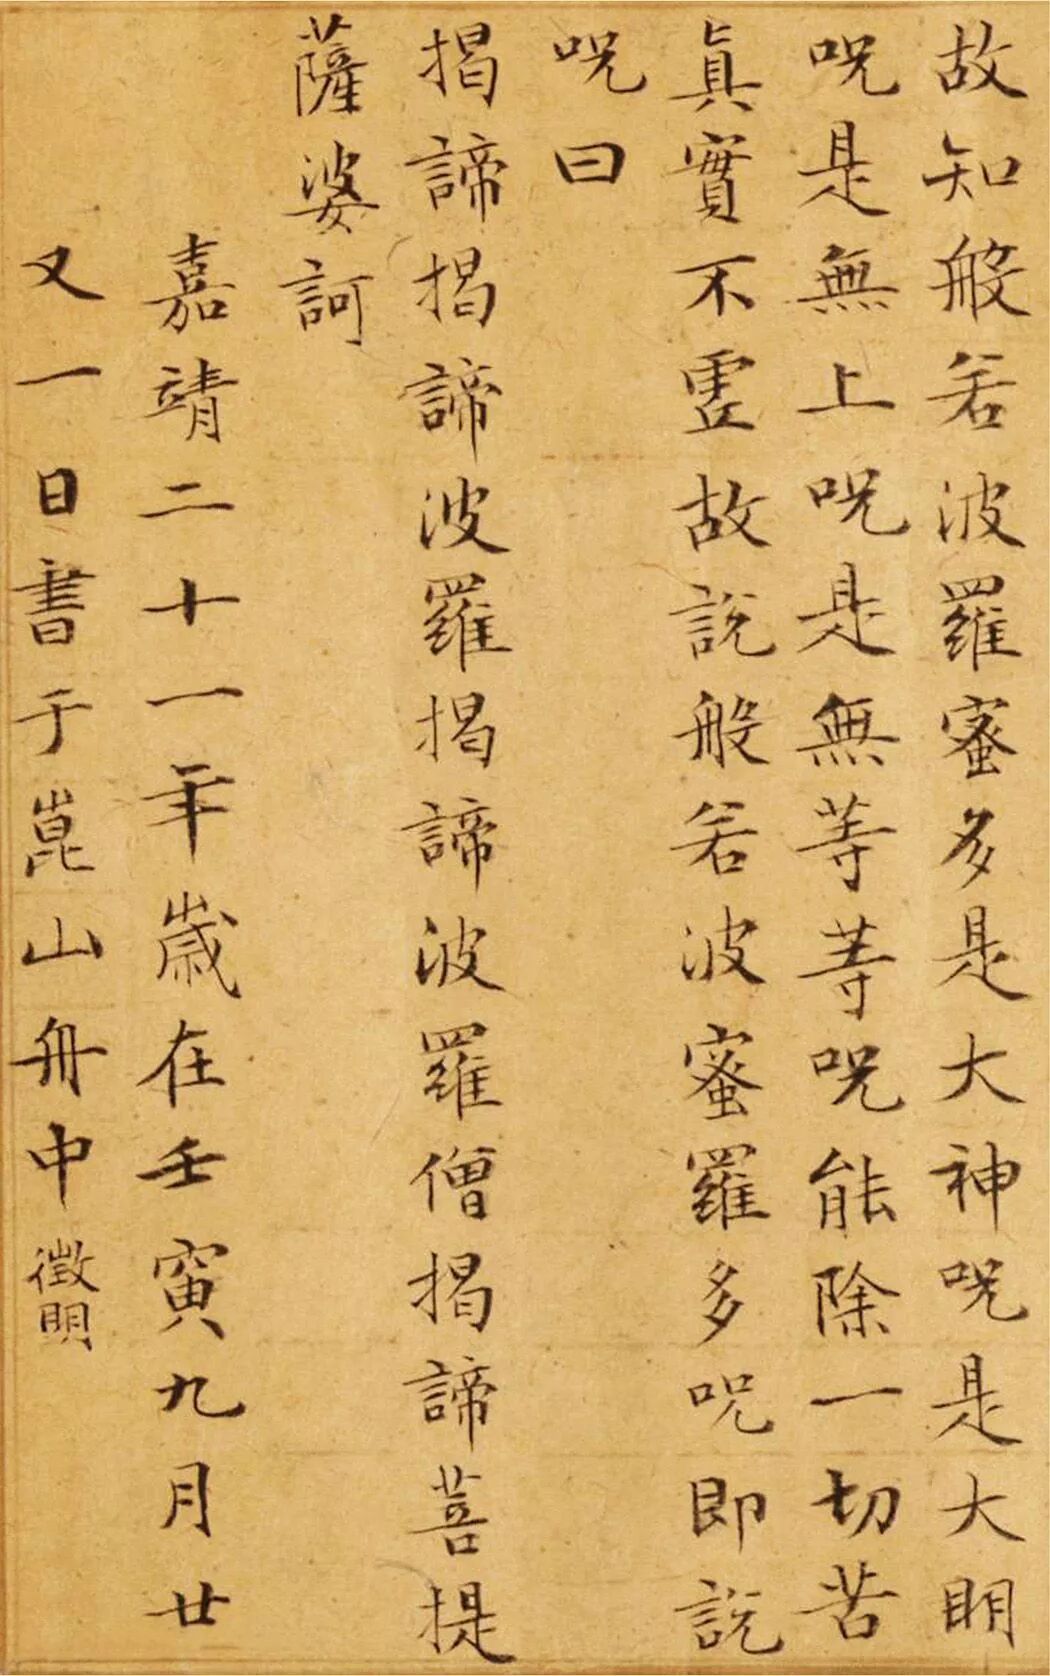 故知般若波羅蜜多是大神呪是大明
呪是無上呪是無等等呪能除一切苦
眞實不虛故說般若波蜜羅多呪即說
呪曰
揭諦揭諦波羅揭諦波羅僧揭諦菩提
薩婆訶
嘉靖二十一年歲在壬寅九月廿
又一日書于崑山舟中徵明